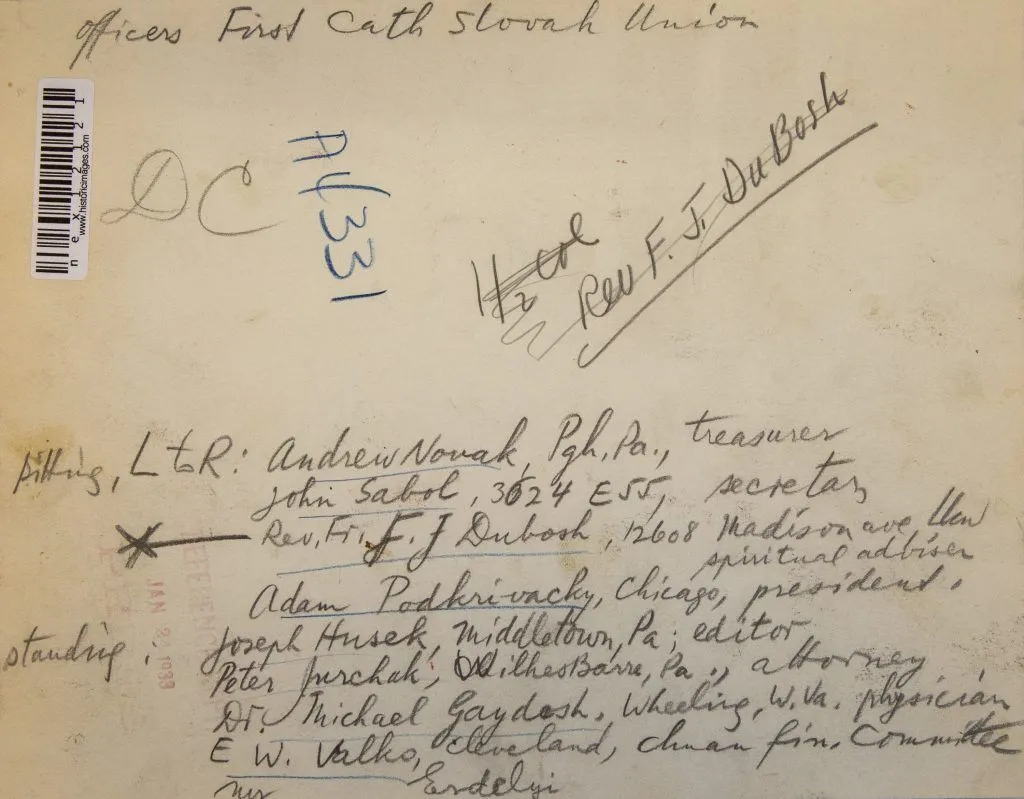 officers First Cath Slovak Union
nex1212121
www.historicimages.com
DC
A4331
Rev F. J. DuBosh
Hz col
sitting, L to R: Andrew Novak, Pgh, Pa., treasurer
John Sabol, 3624 E 55, secretary
Rev. Fr. F. J Dubosh, 12608 Madison ave
spiritual adbiser
Adam Podkrivacky, Chicago, president.
standing: Joseph Husek, Middletown, Pa; editor
Peter Jurchak, WilkesBarre, Pa., attorney
Dr. Michael Gaydosh, Wheeling, W. Va. physician
E W. Valko, Cleveland, chman fin. Committee
Erdelyi
REFERENCE
JAN 2 1938